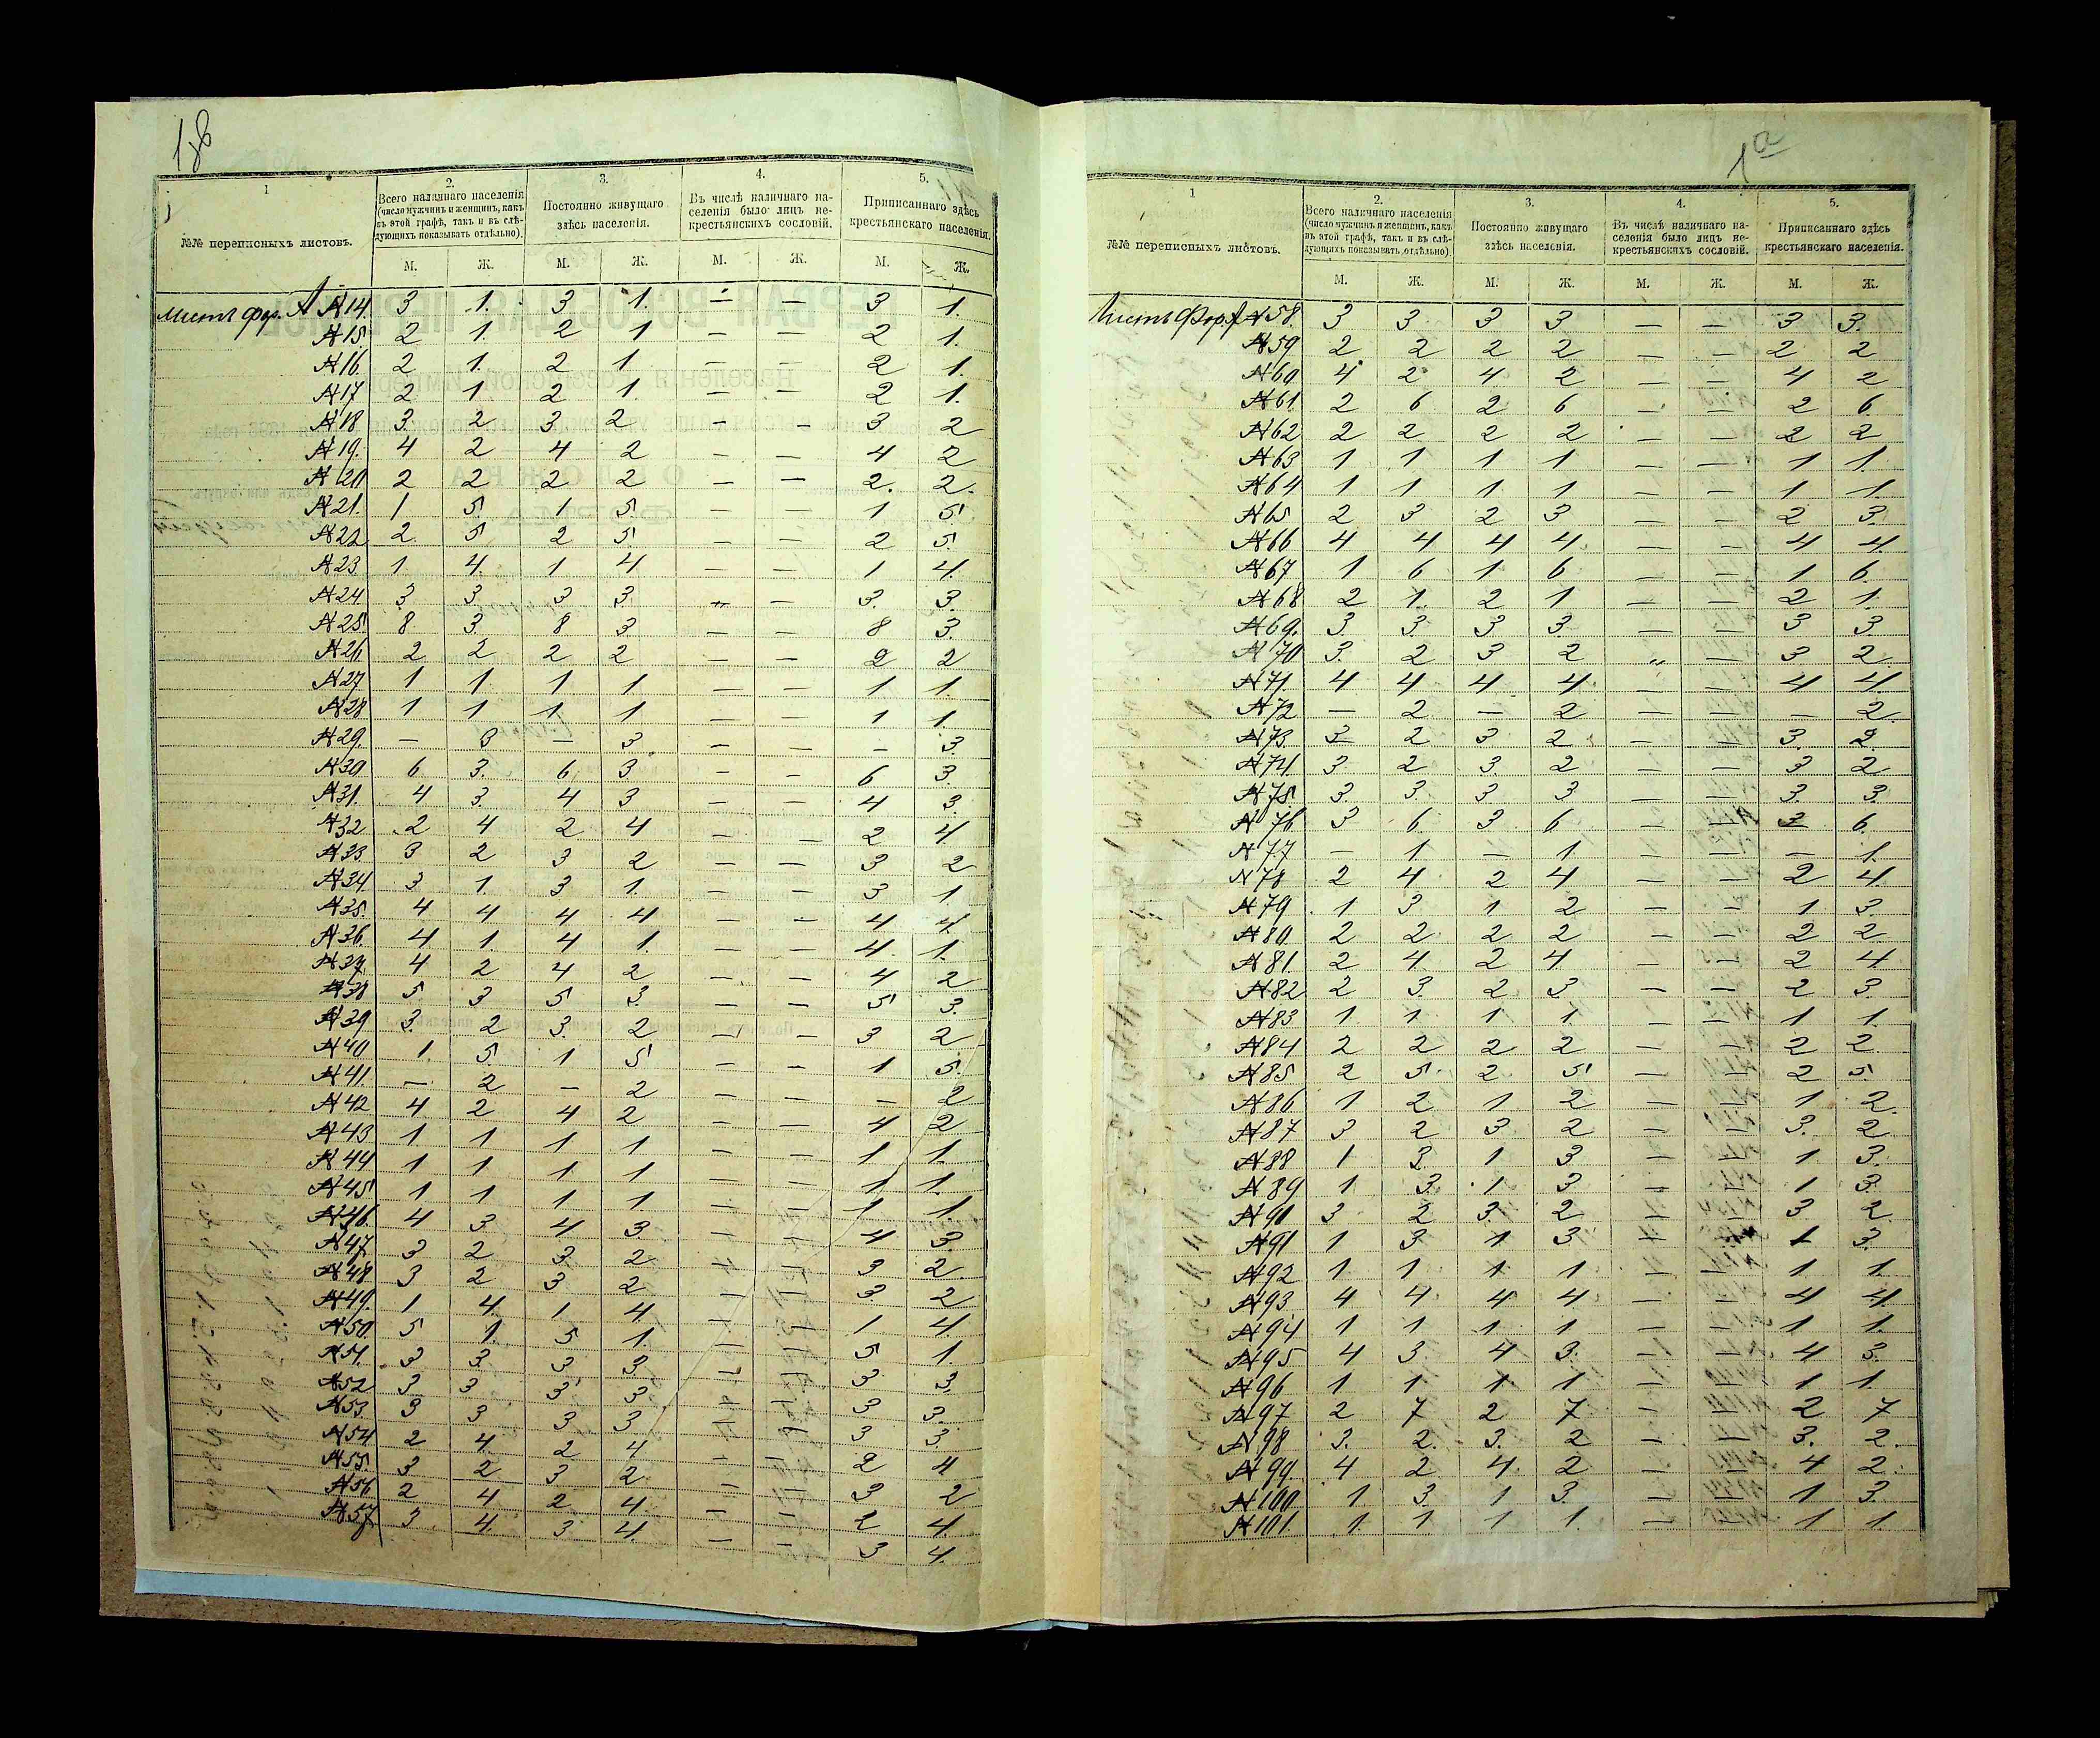 1
2.
3.
4.
5.
№№ переписныхъ листовъ.
Всего наличнаго населенія
(число мужчинъ и женщинъ, какъ
въ этой графѣ, такъ и въ слѣ-
дующихъ показывать отдѣльно).
Постоянно живущаго
здѣсь населенія.
Въ числѣ наличнаго на-
селенія было лицъ не-
крестьянскихъ сословій.
Приписаннаго здѣсь
крестьянскаго населенія.
М. Ж. М. Ж. М. Ж. М. Ж.
Листъ фор. А №14. 3 1. 3 1. — — 3 1.
№15. 2 1. 2 1 — — 2 1.
№16. 2 1. 2 1 — — 2 1.
№17 2 1. 2 1. — — 2 1.
№18 3. 2 3 2 — — 3 2
№19. 4 2 4 2 — — 4 2
№20 2 2 2 2 — — 2. 2.
№21. 1 5 1 5. — — 1 5
№22 2. 5 2 5 — — 2 5.
№23 1. 4. 1 4 — — 1 4.
№24. 3 3 3 3 „ — 3. 3.
№25 8 3. 8 3 — — 8 3.
№26 2 2 2 2 — — 2 2
№27 1 1 1 1 — — 1 1.
№28 1 1 1 1 — — 1 1
№29. — 3 — 3. — — — 3.
№30 6 3. 6 3 — — 6 3.
№31. 4 3. 4 3 — — 4 3.
№32 2 4 2 4 — — 2 4.
№33 3 2 3 2 — — 3 2
№34. 3 1. 3 1. — — 3 1
№35. 4 4 4 4 — — 4 4.
№36. 4 1. 4 1. — — 4. 1.
№37. 4 2 4 2 — — 4 2
№38 5 3 5 3. — — 5 3.
№39 3. 2 3. 2 — — 3 2
№40 1 5. 1 5 — — 1 5.
№41. — 2 — 2 — — — 2
№42 4 2 4 2 — — 4 2
№43 1 1 1 1 — — 1 1.
№44 1 1 1 1 — — 1 1.
№45 1 1 1 1. — — 1 1
№46. 4 3 4 3 — — 4 3.
№47 3 2 3 2 — — 3 2.
№48 3 2 3 2 — — 3. 2
№49. 1 4. 1 4. — — 1 4.
№50. 5 1. 5 1. — — 5 1.
№51. 3 3 3 3 — — 3. 3.
№52 3 3 3 3 — — 3 3.
№53. 3 3 3 3 — — 3 3.
№54 2 4. 2 4 — — 2 4
№55. 3 2 3 2 — — 3 2
№56 2 4 2 4. — — 2 4.
№57 3 4. 3 4. — — 3 4.
1а
1
2.
3.
4.
5.
№№ переписныхъ листовъ.
Всего наличнаго населенія
(число мужчинъ и женщинъ, какъ
въ этой графѣ, такъ и въ слѣ-
дующихъ показывать отдѣльно).
Постоянно живущаго
здѣсь населенія.
Въ числѣ наличнаго на-
селенія было лицъ не-
крестьянскихъ сословій.
Приписаннаго здѣсь
крестьянскаго населенія.
М. Ж. М. Ж. М. Ж. М. Ж.
Листъ Фор. А №58. 3 3. 3 3 — — 3 3.
№59 2 2 2 2 — — 2 2
№60 4 2 4 2 — — 4 2
№61. 2 6 2 6 — — 2 6.
№62 2 2 2 2 — — 2 2
№63 1 1 1 1 — — 1 1.
№64 1 1 1 1 — — 1 1.
№65 2 3 2 3 — — 2 3.
№66 4 4 4 4 — — 4 4.
№67 1 6 1 6 — — 1 6.
№68 2 1. 2 1 — — 2 1.
№69. 3. 3. 3 3 — — 3 3
№70 3. 2 3 2 „ — 3 2
№71. 4 4 4 4 — — 4 4.
№72 — 2 — 2 — — — 2.
№73. 3 2 3 2 — — 3. 2.
№74. 3 2 3. 2 — — 3 2
№75. 3. 3 3 3 — — 3. 3.
№76 3 6 3 6 — — 3 6.
№77 — 1 — 1 — — — 1.
№78 2 4 2 4 — — 2 4.
№79 1 3 1 2 — — 1 3.
№80. 2 2 2 2 — — 2 2.
№81. 2 4 2 4. — — 2 4
№82 2 3. 2 3 — — 2 3.
№83 1 1 1 1. — — 1 1.
№84 2 2 2 2 — — 2 2.
№85 2 5 2 5 — — 2 5.
№86 1 2 1 2 — — 1 2.
№87 3 2 3 2 — — 3. 2
№88 1 3 1 3 — — 1 3.
№89 1 3. 1 3 — — 1 3.
№90 3 2 3. 2 — — 3 2.
№91 1 3 1 3 — — 1 3.
№92 1 1 1 1 — — 1 1.
№93 4 4 4 4 — — 4 4.
№94 1 1 1 1 — — 1 1.
№95 4 3 4 3. — — 4 3.
№96 1 1 1 1 — — 1 1.
№97 2 7 2 7 — — 2 7
№98 3. 2. 3. 2 — — 3. 2.
№99. 4 2 4. 2 — — 4 2.
№100 1 3. 1 3. — — 1 3.
№101. 1. 1 1 1. — — 1 1.